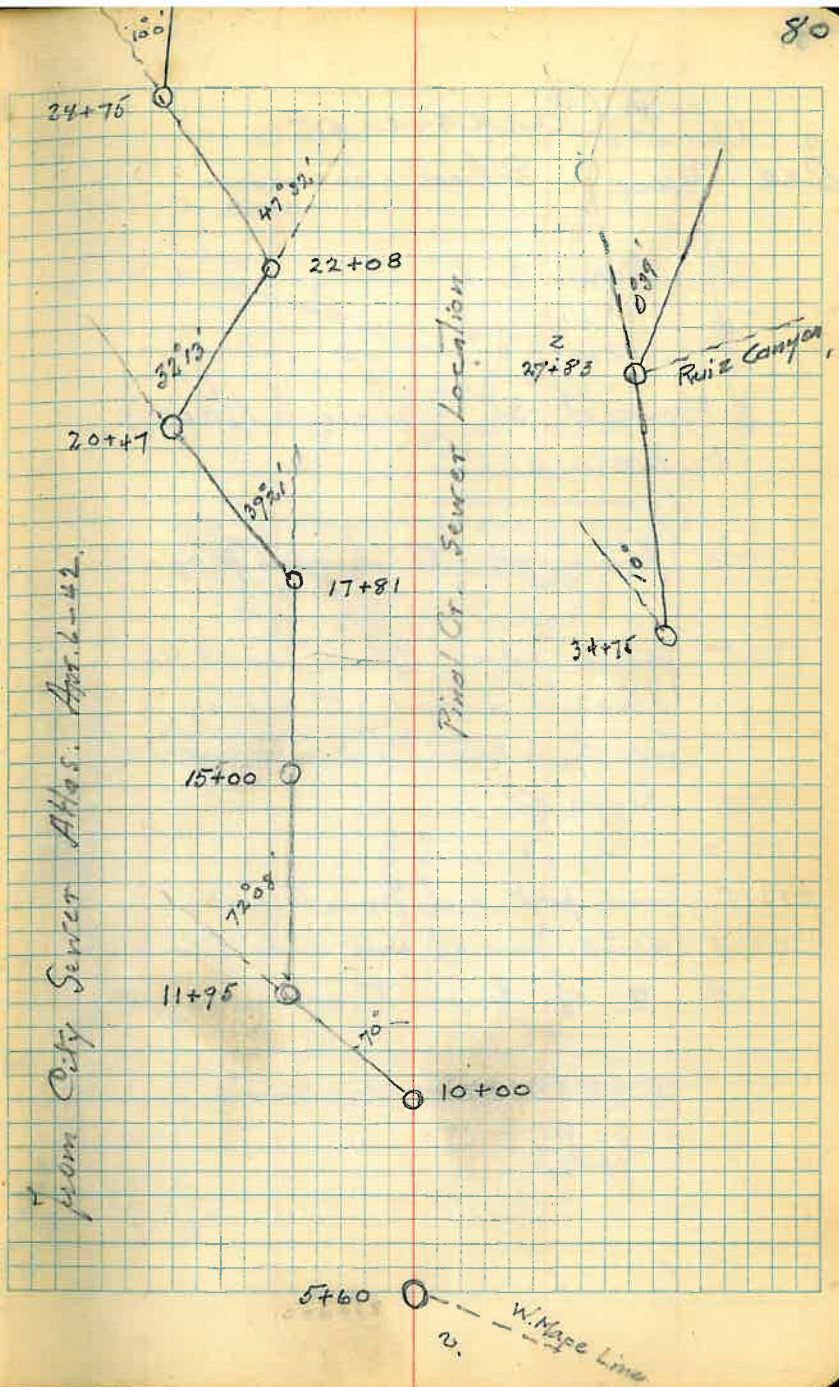 80
24+75
47°32'
22+08
32°13'
20+47
39°21'
17+81
15+00
72°08'
11+95
70°
10+00
5+60
W.
From City Sewer Atlas. Apr. 6-42.
Sewer Location
0°39'
27+83
Ruiz Canyon
10°
34+75